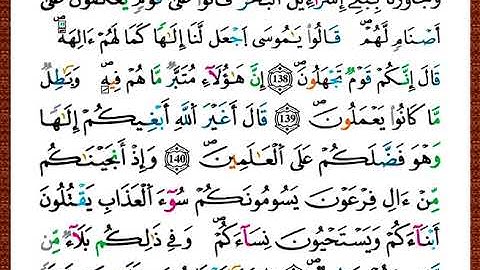 وَجَٰوَزْنَا بِبَنِىٓ إِسْرَٰٓءِيلَ ٱلْبَحْرَ فَأَتَوْا۟ عَلَىٰ قَوْمٍ يَعْكُفُونَ عَلَىٰٓ
أَصْنَامٍ لَّهُمْ ۚ قَالُوا۟ يَٰمُوسَى ٱجْعَل لَّنَآ إِلَٰهًا كَمَا لَهُمْ ءَالِهَةٌ ۚ
قَالَ إِنَّكُمْ قَوْمٌ تَجْهَلُونَ 138 إِنَّ هَٰٓؤُلَآءِ مُتَبَّرٌ مَّا هُمْ فِيهِ وَبَٰطِلٌ
مَّا كَانُوا۟ يَعْمَلُونَ 139 قَالَ أَغَيْرَ ٱللَّهِ أَبْغِيكُمْ إِلَٰهًا
وَهُوَ فَضَّلَكُمْ عَلَى ٱلْعَٰلَمِينَ 140 وَإِذْ أَنجَيْنَٰكُم
مِّنْ ءَالِ فِرْعَوْنَ يَسُومُونَكُمْ سُوٓءَ ٱلْعَذَابِ يُقَتِّلُونَ
أَبْنَآءَكُمْ وَيَسْتَحْيُونَ نِسَآءَكُمْ ۚ وَفِى ذَٰلِكُم بَلَآءٌ مِّن